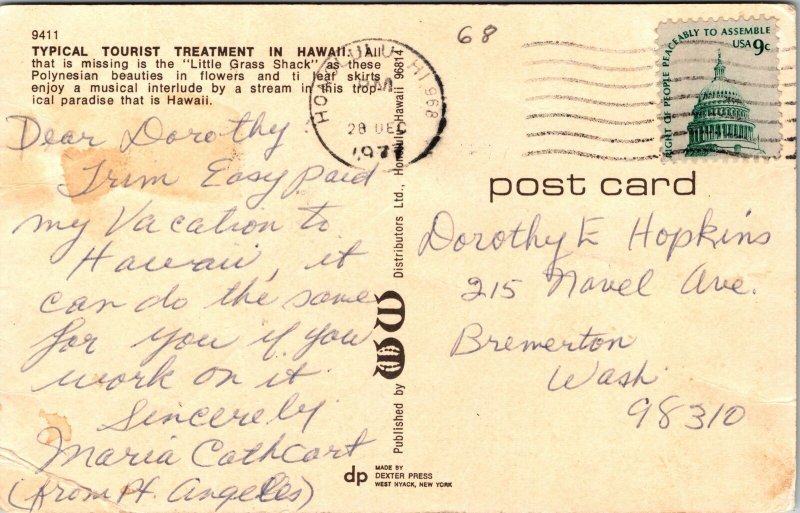 9411
TYPICAL TOURIST TREATMENT IN HAWAII. All
that is missing is the "Little Grass Shack" as these
Polynesian beauties in flowers and ti leaf skirts
enjoy a musical interlude by a stream in this trop-
ical paradise that is Hawaii.
Dear Dorothy
Trim Easy paid
my Vacation to
Hawaii, it
can do the same
for you if you
work on it.
Sincerely
Maria Cathcart
(from Pt. Angeles)
Published by WW Distributors Ltd., Honolulu, Hawaii 96814
MADE BY
dp DEXTER PRESS
WEST NYACK, NEW YORK
HONOLULU, HI 968
28 DEC
1977
68
RIGHT OF PEOPLE PEACEABLY TO ASSEMBLE
USA 9c
post card
Dorothy E Hopkins
215 Navel Ave.
Bremerton
Wash
98310